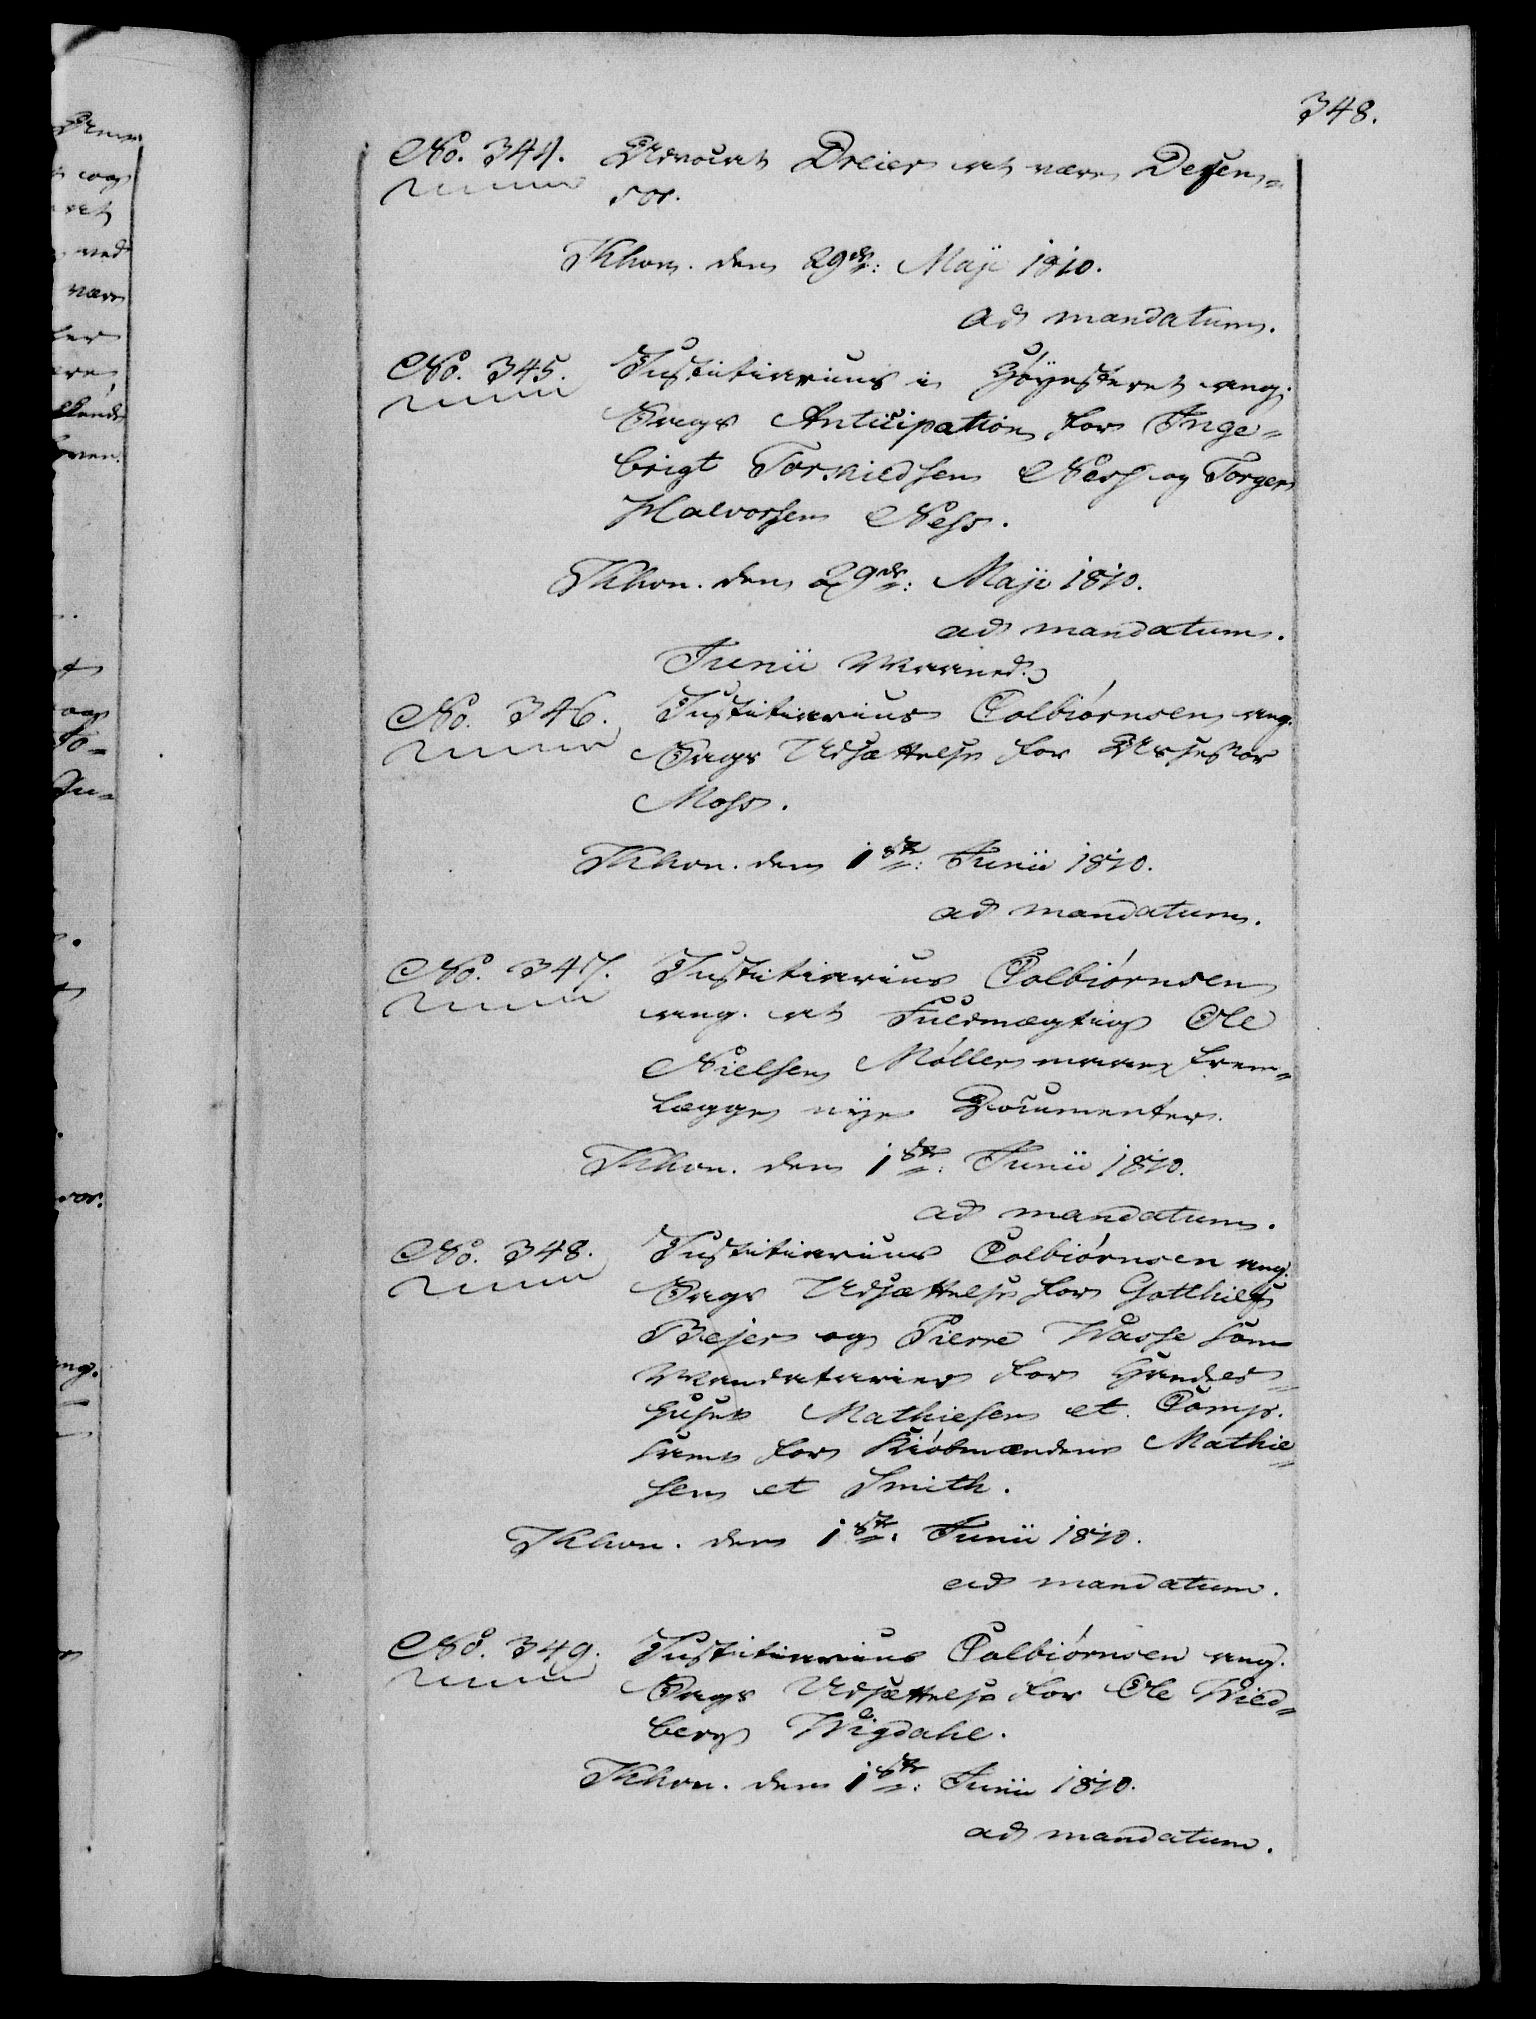 348.
No. 344. Advocat Dreier at være Defen-
sor.
Khvn. den 29de: Maji 1810.
ad mandatum.
No. 345. Justitiarius i Høyesteret ang.
Sags Anticipation for Inge-
brigt Torkildsen Ness og Torger
Halvorsen Ness.
Khvn. den 29de: Maji 1810.
ad mandatum.
Junii Maaned.
No. 346. Justitiarius Colbiørnsen ang.
Sags Udsættelse for Assessor
Moss.
Khvn. den 1ste: Junii 1810.
ad mandatum.
No. 347. Justitiarius Colbiørnsen
ang. at Fuldmægtig Ole
Nielsen Møller maae frem-
lægge nye Documenter.
Khvn. den 1ste: Junii 1810.
ad mandatum.
No. 348. Justitiarius Colbiørnsen ang.
Sags Udsættelse for Gotthilf
Bejer og Pierre Wasse som
Mandatarier for Handels-
huset Mathiesen et Comp.
samt for Kiøbmændene Mathie-
sen et Smith.
Khvn. den 1ste: Junii 1810.
ad mandatum.
No. 349. Justitiarius Colbiørnsen ang.
Sags Udsættelse for Ole Wied-
berg Wigdahl.
Khvn. den 1ste: Junii 1810.
ad mandatum.